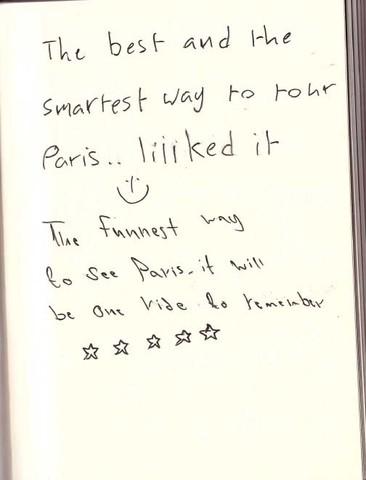 The best and the
smartest way to tour
Paris.. liiiked it
The funnest way
to see Paris. it will
be one ride to remember